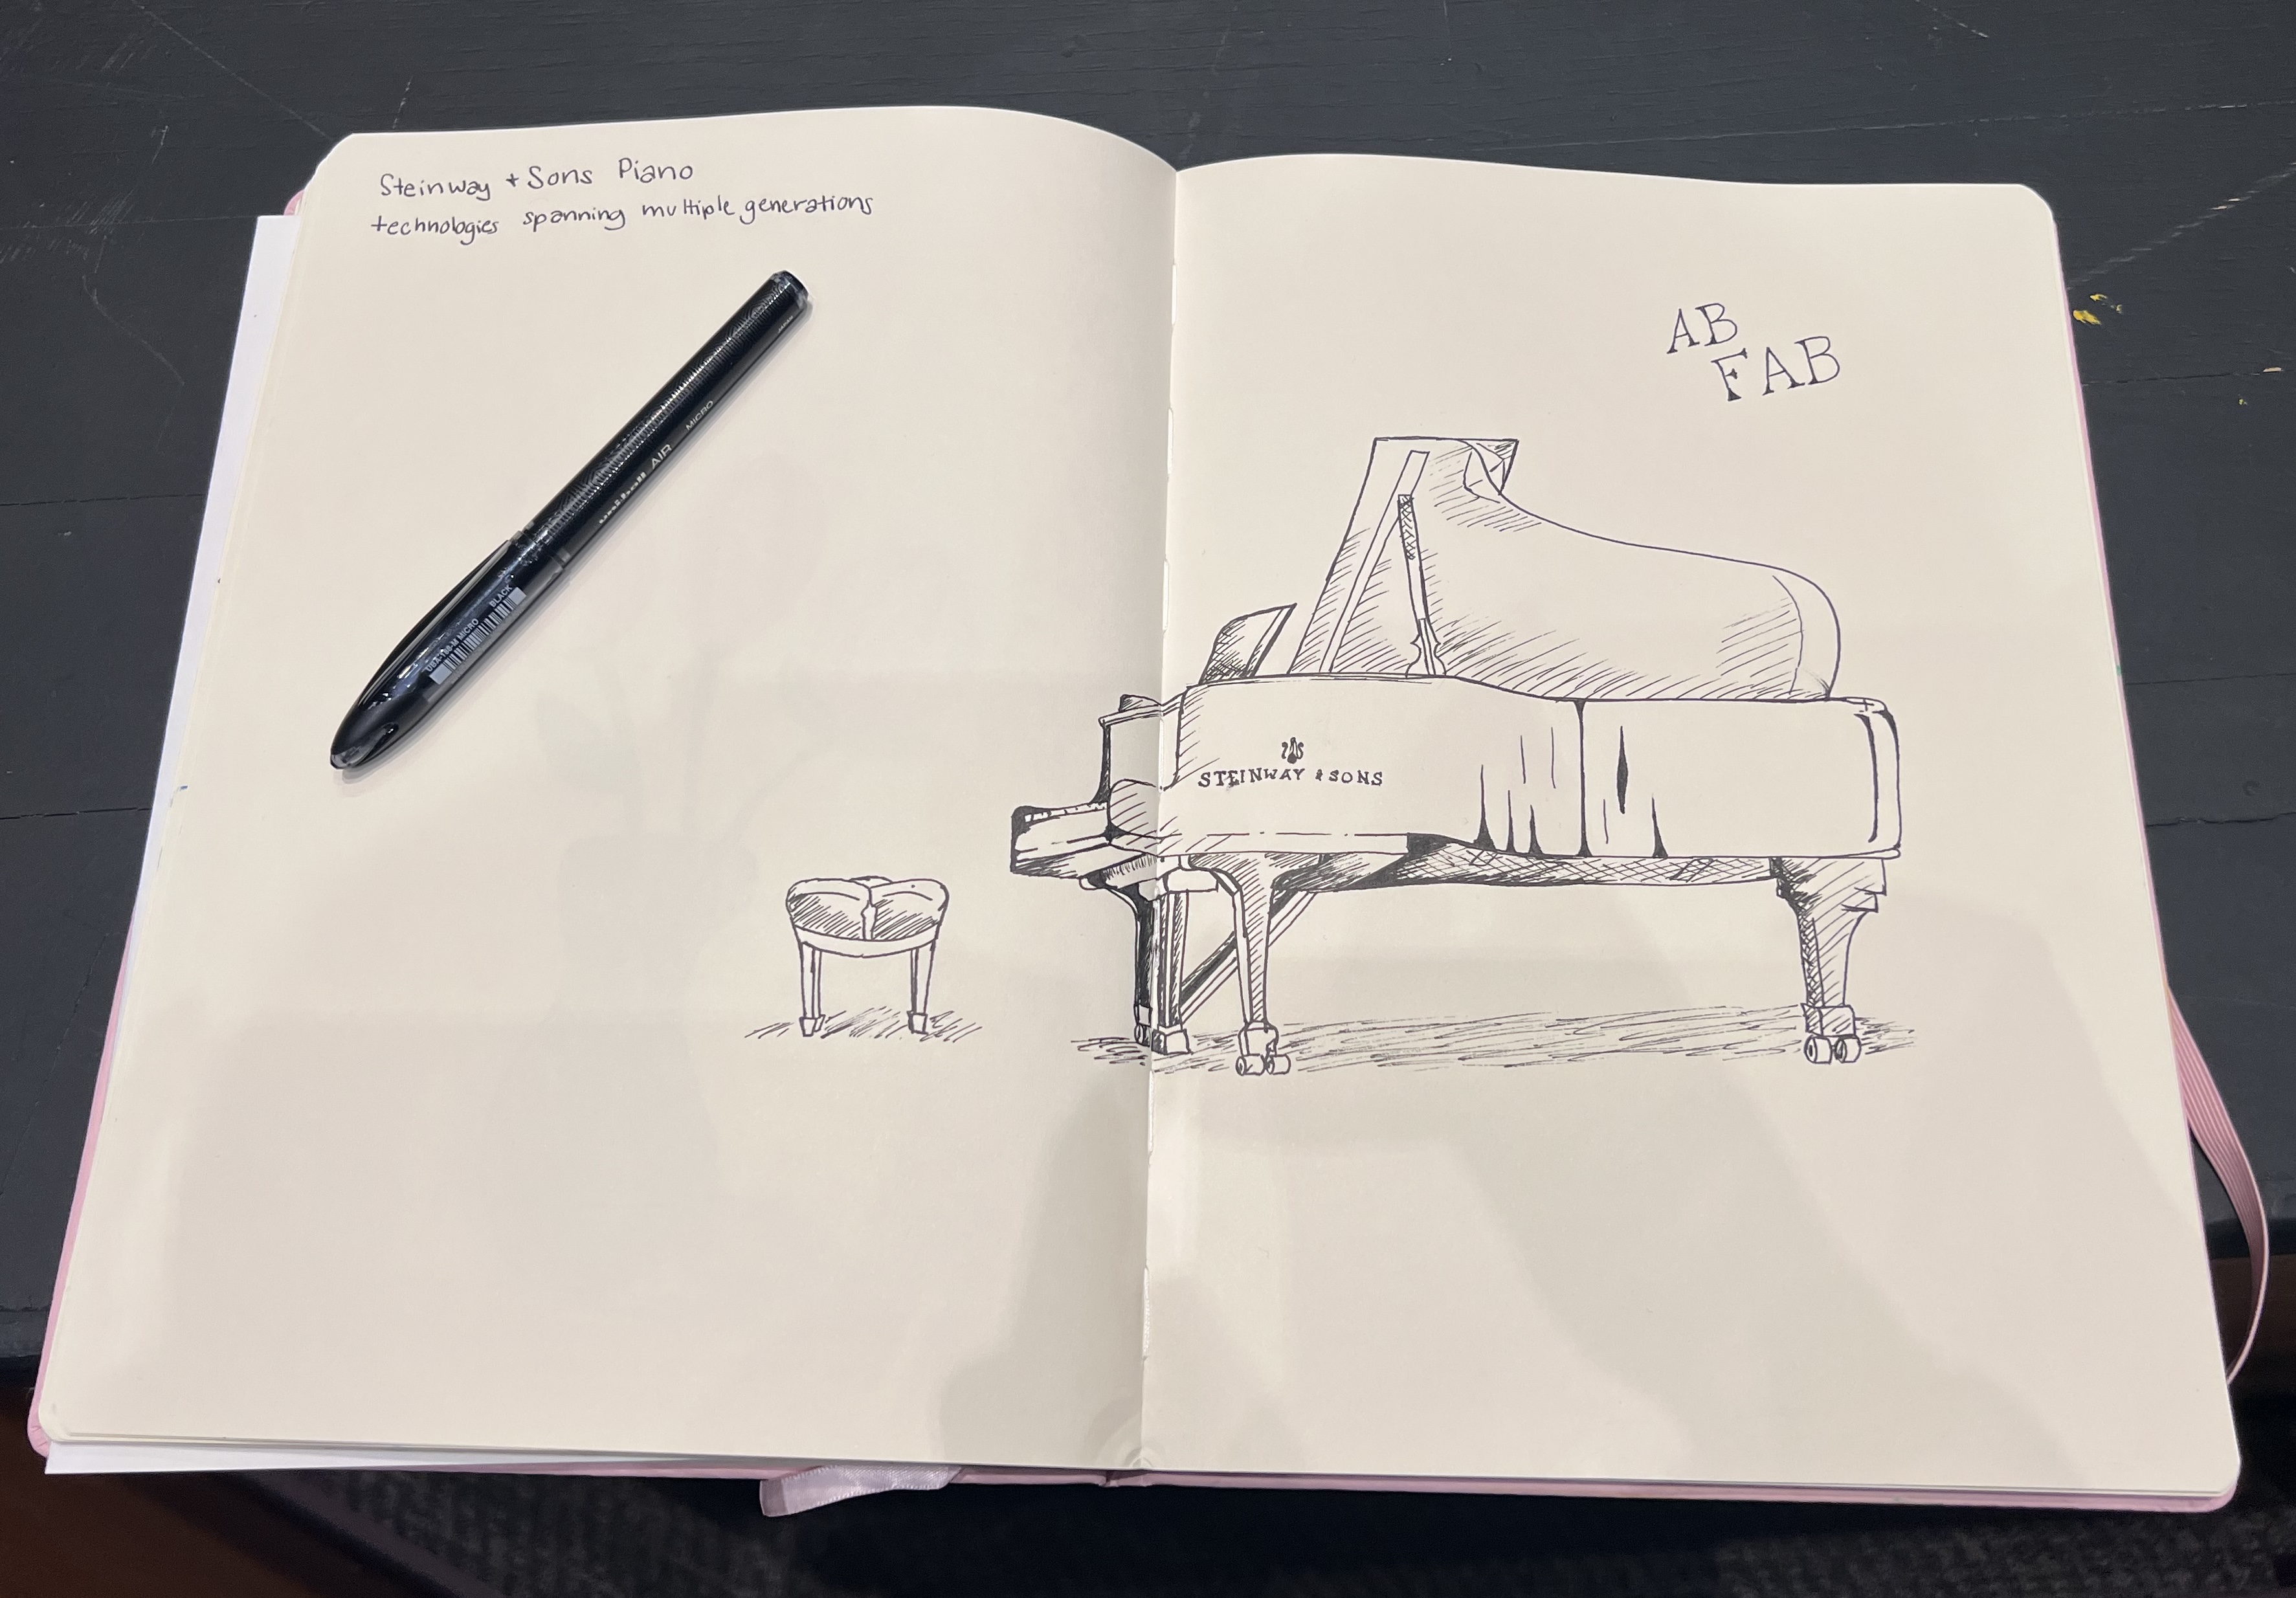 Steinway + Sons Piano
technologies spanning multiple generations
AB
FAB
uni-ball AIR MICRO
BLACK
UBA-188-M MICRO
STEINWAY & SONS